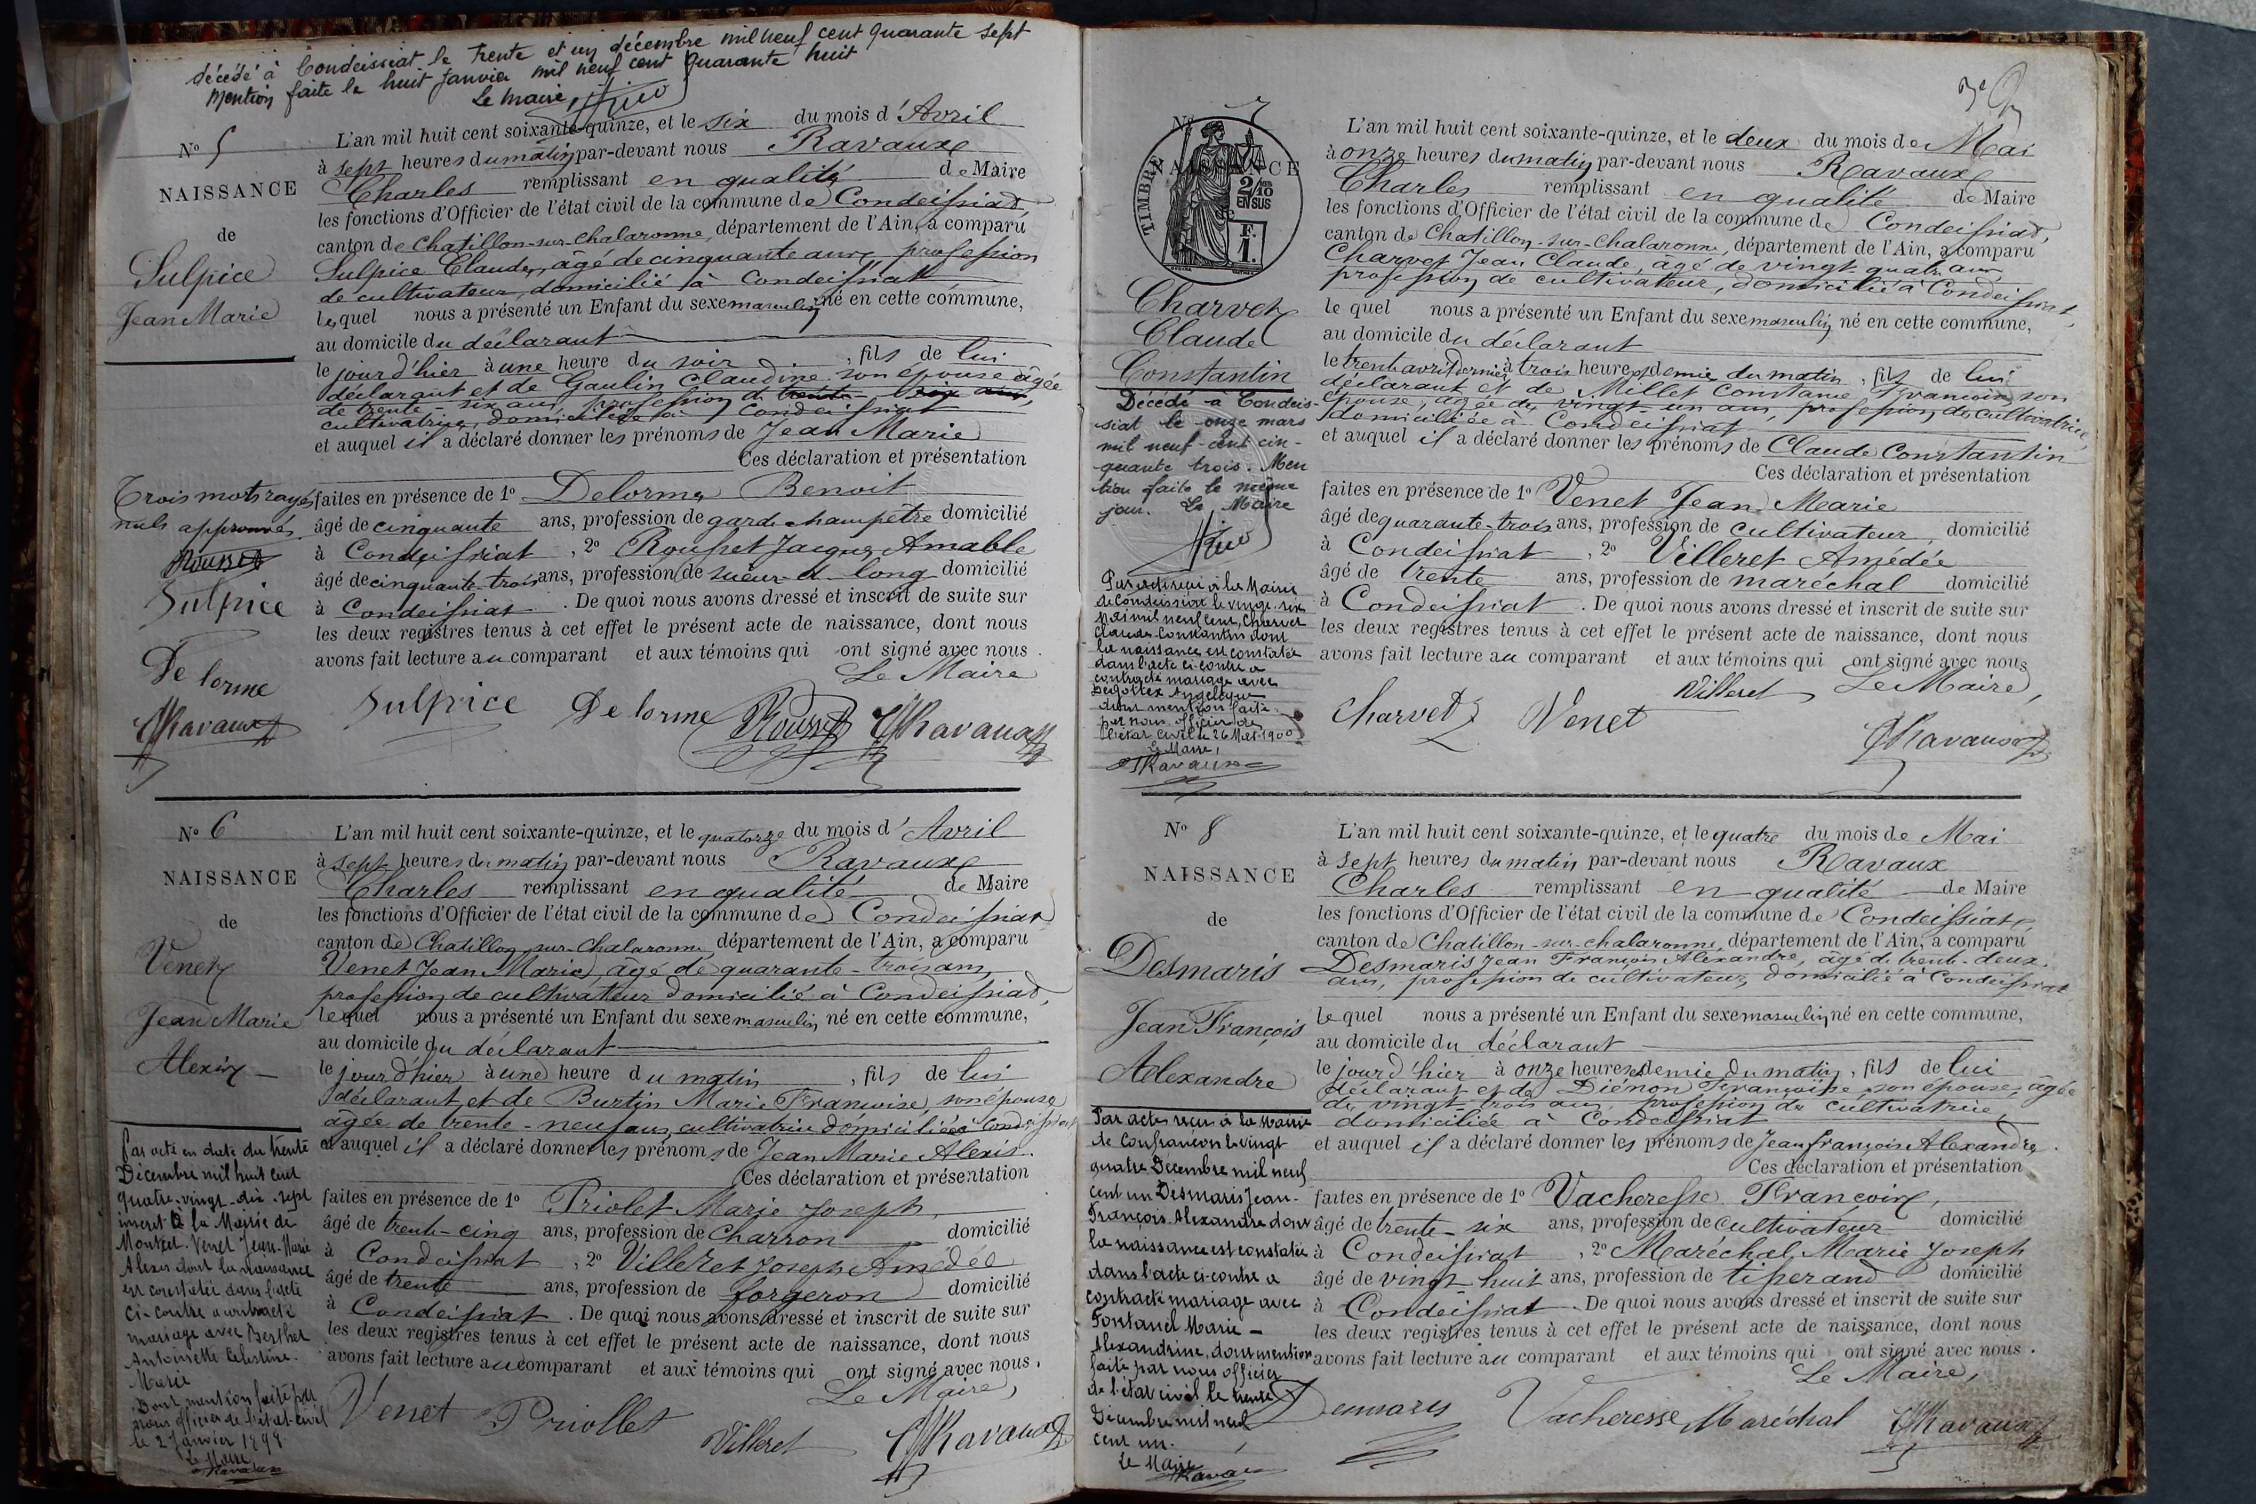 décédé à Condeissiat le trente et un décembre mil neuf cent quarante sept
Mention faite le huit Janvier mil neuf cent quarante huit
Le Maire,
N° 5
NAISSANCE
de
Sulpice
Jean Marie
L'an mil huit cent soixante-quinze, et le six du mois d'Avril
à sept heures du matin par-devant nous Ravaux
Charles remplissant en qualité de Maire
les fonctions d'Officier de l'état civil de la commune de Condeissiat,
canton de Chatillon-sur-Chalaronne, département de l'Ain, a comparu
Sulpice Claude, âgé de cinquante ans, profession
de cultivateur, domicilié à Condeissiat
lequel nous a présenté un Enfant du sexe masculin né en cette commune,
au domicile du déclarant
le jour d'hier à une heure du soir, fils de lui
déclarant et de Gaulin Claudine son épouse âgée
de trente-six ans, profession de trente-six ans,
cultivatrice, domiciliée à Condeissiat
et auquel il a déclaré donner les prénoms de Jean Marie
Ces déclaration et présentation
faites en présence de 1° Delorme Benoit
âgé de cinquante ans, profession de garde champêtre domicilié
à Condeissiat, 2° Rousset Jacques Amable
âgé de cinquante-trois ans, profession de scieur de long domicilié
à Condeissiat. De quoi nous avons dressé et inscrit de suite sur
les deux registres tenus à cet effet le présent acte de naissance, dont nous
avons fait lecture au comparant et aux témoins qui ont signé avec nous.
Le Maire
Sulpice Delorme Rousset Ravaux
Trois mots rayés
nuls approuvés.
Rousset
Sulpice
Delorme
Ravaux
N° 6
NAISSANCE
de
Venet
Jean Marie
Alexis
L'an mil huit cent soixante-quinze, et le quatorze du mois d'Avril
à sept heures du matin par-devant nous Ravaux
Charles remplissant en qualité de Maire
les fonctions d'Officier de l'état civil de la commune de Condeissiat
canton de Chatillon-sur-Chalaronne, département de l'Ain, a comparu
Venet Jean Marie, âgé de quarante-trois ans,
profession de cultivateur domicilié à Condeissiat,
lequel nous a présenté un Enfant du sexe masculin né en cette commune,
au domicile du déclarant
le jour d'hier à une heure du matin, fils de lui
déclarant et de Burtin Marie Françoise, son épouse
âgée de trente-neuf ans, cultivatrice domiciliée à Condeissiat
et auquel il a déclaré donner les prénoms de Jean Marie Alexis.
Ces déclaration et présentation
faites en présence de 1° Priolet Marie Joseph,
âgé de trente-cinq ans, profession de Charron domicilié
à Condeissiat, 2° Villeret Joseph Amédée
âgé de trente ans, profession de forgeron domicilié
à Condeissiat. De quoi nous avons dressé et inscrit de suite sur
les deux registres tenus à cet effet le présent acte de naissance, dont nous
avons fait lecture au comparant et aux témoins qui ont signé avec nous.
Le Maire,
Venet Priollet Villeret Ravaux
Par acte en date du trente
Décembre mil huit cent
quatre-vingt-dix-sept
inscrit à la Mairie de
Montcet. Venet Jean-Marie
Alexis dont la naissance
est constatée dans l'acte
ci-contre a contracté
mariage avec Berthet
Antoinette Célestine.
Marie
Dont mention faite par
nous officier de l'état-civil
le 2 Janvier 1898
Le Maire
Ravaux
N° 7
NAISSANCE
TIMBRE
2/10
EN SUS
1 F.
Charvet
Claude
Constantin
L'an mil huit cent soixante-quinze, et le deux du mois de Mai
à onze heures du matin par-devant nous Ravaux
Charles remplissant en qualité de Maire
les fonctions d'Officier de l'état civil de la commune de Condeissiat,
canton de Chatillon-sur-Chalaronne, département de l'Ain, a comparu
Charvet Jean Claude, âgé de vingt quatre ans
profession de cultivateur, domicilié à Condeissiat,
lequel nous a présenté un Enfant du sexe masculin né en cette commune,
au domicile du déclarant
le trente avril dernier à trois heures et demie du matin, fils de lui
déclarant et de Millet Constance Françoise, son
épouse, âgée de vingt-un ans, profession de cultivatrice,
domiciliée à Condeissiat
et auquel il a déclaré donner les prénoms de Claude Constantin
Ces déclaration et présentation
faites en présence de 1° Venet Jean Marie
âgé de quarante-trois ans, profession de cultivateur, domicilié
à Condeissiat, 2° Villeret Amédée
âgé de trente ans, profession de maréchal domicilié
à Condeissiat. De quoi nous avons dressé et inscrit de suite sur
les deux registres tenus à cet effet le présent acte de naissance, dont nous
avons fait lecture au comparant et aux témoins qui ont signé avec nous
Le Maire,
Charvet Venet Villeret Ravaux
Décédé à Condeis-
siat le onze mars
mil neuf cent cin-
quante trois. Men
tion faite le même
jour. Le Maire
Par acte reçu à la Mairie
de Condeissiat le vingt-six
Mai mil neuf cent, Charvet
Claude-Constantin dont
la naissance est constatée
dans l'acte ci-contre a
contracté mariage avec
Angélique
dont mention faite
par nous officier de
l'état civil le 26 Mai 1900
Le Maire,
Ravaux
N° 8
NAISSANCE
de
Desmaris
Jean François
Alexandre
L'an mil huit cent soixante-quinze, et le quatre du mois de Mai
à sept heures du matin par-devant nous Ravaux
Charles remplissant en qualité de Maire
les fonctions d'Officier de l'état civil de la commune de Condeissiat,
canton de Chatillon-sur-chalaronne, département de l'Ain, a comparu
Desmaris Jean François Alexandre, âgé de trente-deux
ans, profession de cultivateur, domicilié à Condeissiat
lequel nous a présenté un Enfant du sexe masculin né en cette commune,
au domicile du déclarant
le jour d'hier à onze heures et demie du matin, fils de lui
déclarant et de Diénon Françoise son épouse, âgée
de vingt-trois ans, profession de cultivatrice,
domiciliée à Condeissiat
et auquel il a déclaré donner les prénoms de Jean françois Alexandre.
Ces déclaration et présentation
faites en présence de 1° Vacheresse François,
âgé de trente-six ans, profession de cultivateur domicilié
à Condeissiat, 2° Maréchal Marie Joseph
âgé de vingt-huit ans, profession de tisserand domicilié
à Condeissiat. De quoi nous avons dressé et inscrit de suite sur
les deux registres tenus à cet effet le présent acte de naissance, dont nous
avons fait lecture au comparant et aux témoins qui ont signé avec nous.
Le Maire,
Desmaris Vacheresse Maréchal Ravaux
Par acte reçu à la Mairie
de Confrançon le vingt
quatre Décembre mil neuf
cent un Desmaris Jean-
François-Alexandre dont
la naissance est constatée
dans l'acte ci-contre a
contracté mariage avec
Fontanel Marie-
Alexandrine, dont mention
faite par nous officier
de l'état civil le trente
Décembre mil neuf
cent un.
Le Maire
Ravaux